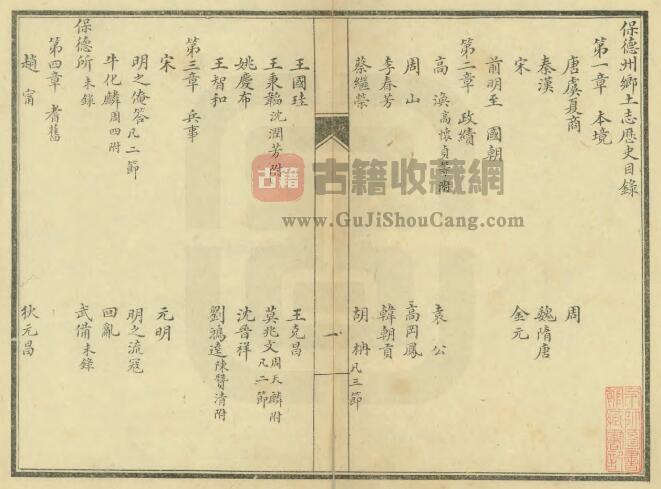 保德州鄉土志歷史目錄
第一章 本境
唐虞夏商 周
秦漢 魏隋唐
宋 金元
前明至 國朝
第二章 政績
高 渙高懷貞等附 袁 公
周 山 高岡鳳
李春芳 韓朝貢
蔡繼榮 胡 枬凡三節
一
王國珪 王克昌
王秉韜沈潤芳附 莫兆文周天麟附凡二節
姚慶布 沈晉祥
王智和 劉鴻逵陳贊清附
第三章 兵事
宋 元明
明之俺答凡二節 明之流冦
牛化麟周四附 回亂
保德所未錄 武備未錄
第四章 耆舊
趙 甯 狄元昌
古籍 古籍收藏網
www.GuJiShouCang.com